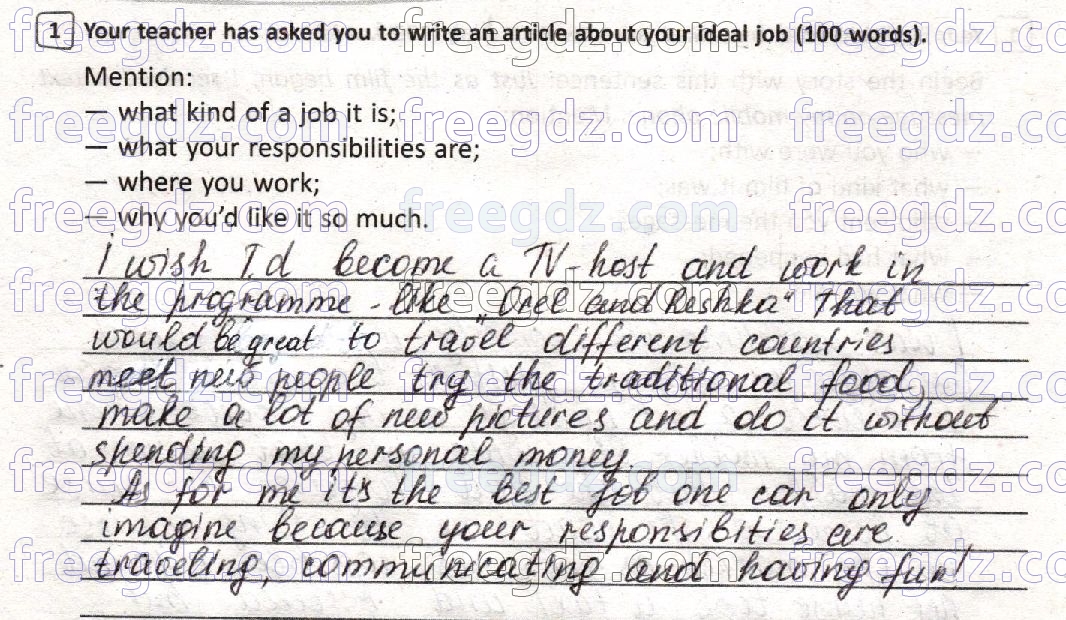 1 Your teacher has asked you to write an article about your ideal job (100 words).
Mention:
— what kind of a job it is;
— what your responsibilities are;
— where you work;
— why you'd like it so much.
I wish I'd become a TV-host and work in
the programme - like „Orel and Reshka“ That
would be great to travel different countries
meet new people try the traditional food,
make a lot of new pictures and do it without
spending my personal money.
As for me it's the best job one can only
imagine because your responsibities are
traveling, communicating and having fun!
freegdz.com